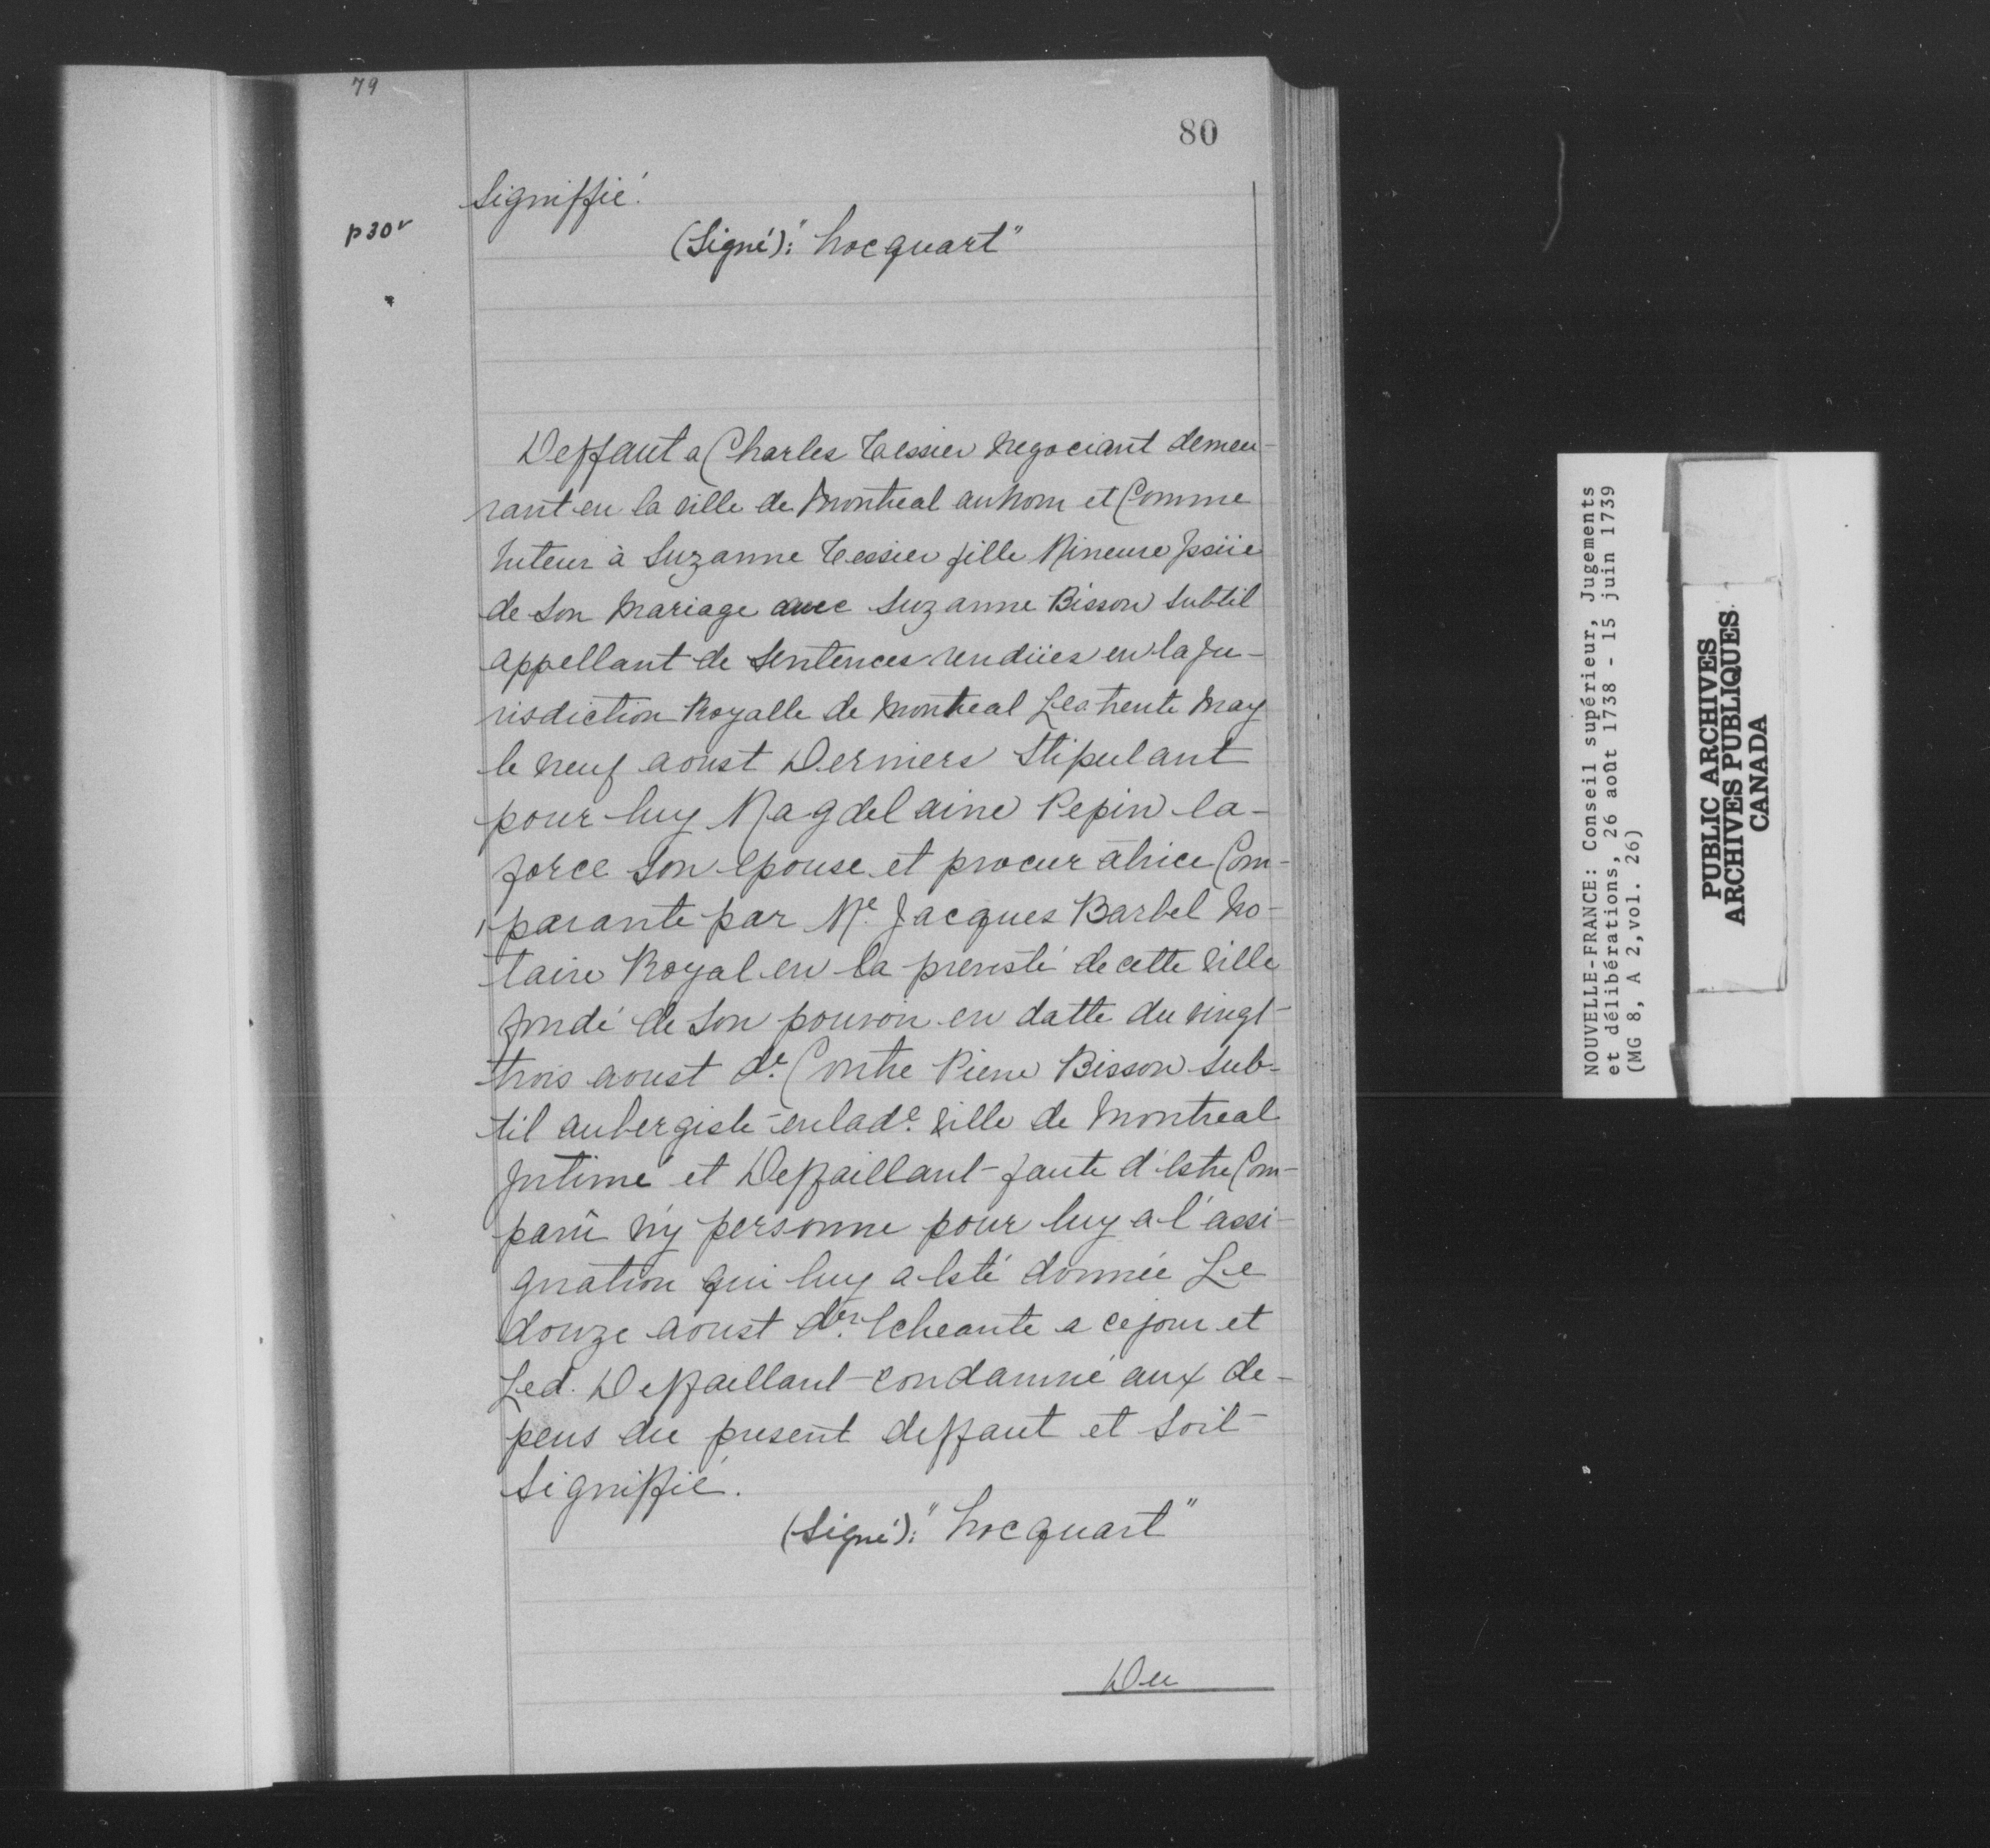 79
80
p 30 v
Signiffié.
(Signé): "hocquart"
Deffaut a Charles Tessier Negociant demeu-
rant en la ville de Montreal au nom et Comme
tuteur à Suzanne Tessier fille Mineure Jssüe
de Son Mariage avec Suzanne Bisson Subtil
appellant de Sentences rendües en la Ju-
risdiction Royalle de Montreal Les trente May
le neuf aoust Derniers Stipulant
pour luy Magdelaine Pepin la-
force Son Epouse et procuratrice Com-
parante par Me. Jacques Barbel No-
taire Royal en la prevosté de cette ville
fondé de Son pouvoir en datte du vingt-
trois aoust dr. Contre Pierre Bisson Sub-
til aubergiste en lade. ville de Montreal
Jntimé et Deffaillant faute d'Estre Com-
parû n'y personne pour luy a l'assi-
gnation qui luy a Esté donnée Le
douze aoust der. Echeante a ce jour et
Led. Deffaillant condamné aux de-
pens du present deffaut et Soit
Signiffié.
(Signé): "hocquart"
Du
NOUVELLE-FRANCE: Conseil supérieur, Jugements
et délibérations, 26 août 1738 - 15 juin 1739
(MG 8, A 2,vol. 26)
PUBLIC ARCHIVES
ARCHIVES PUBLIQUES
CANADA